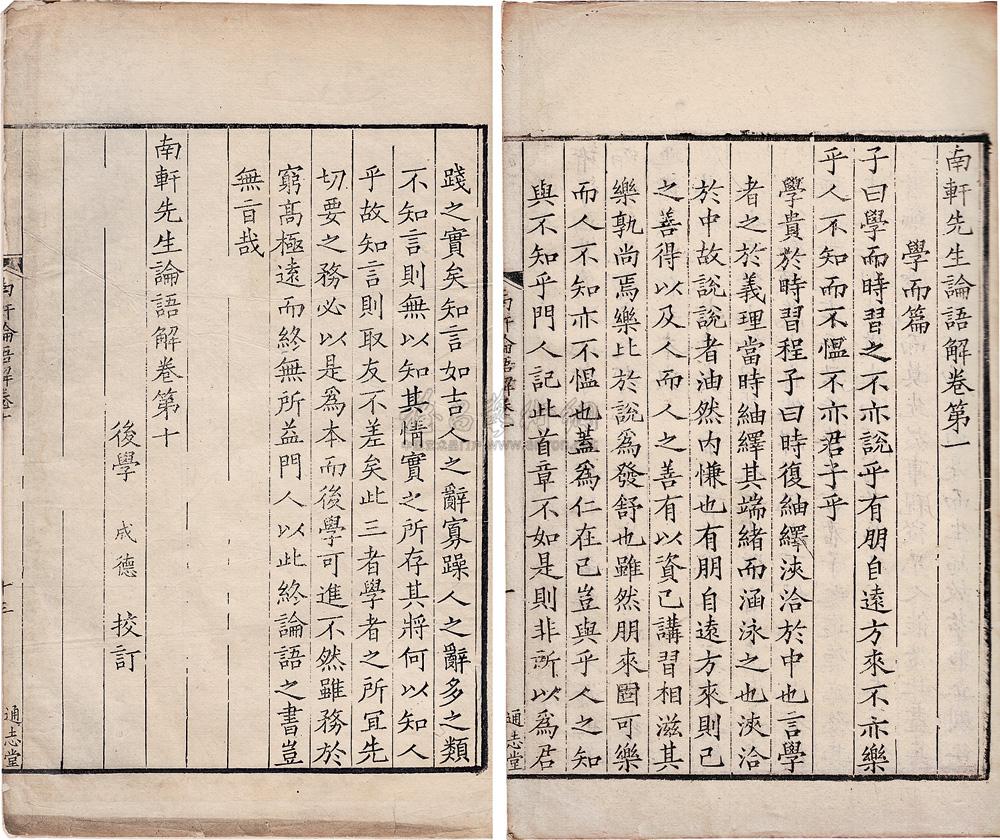 南軒先生論語解卷第一
學而篇
子曰學而時習之不亦說乎有朋自遠方來不亦樂
乎人不知而不慍不亦君子乎
學貴於時習程子曰時復紬繹浹洽於中也言學
者之於義理當時紬繹其端緒而涵泳之也浹洽
於中故說說者油然内慊也有朋自遠方來則已
之善得以及人而人之善有以資已講習相滋其
樂孰尚焉樂比於說爲發舒也雖然朋來固可樂
而人不知亦不慍也蓋爲仁在已豈與乎人之知
與不知乎門人記此首章不如是則非所以爲君
南軒論語解卷一
一
通志堂
踐之實矣知言如吉人之辭寡躁人之辭多之類
不知言則無以知其情實之所存其將何以知人
乎故知言則取友不差矣此三者學者之所宜先
切要之務必以是爲本而後學可進不然雖務於
窮高極遠而終無所益門人以此終論語之書豈
無㫖哉
南軒先生論語解卷第十
後學 成德 挍訂
南軒論語解卷十
十三
通志堂